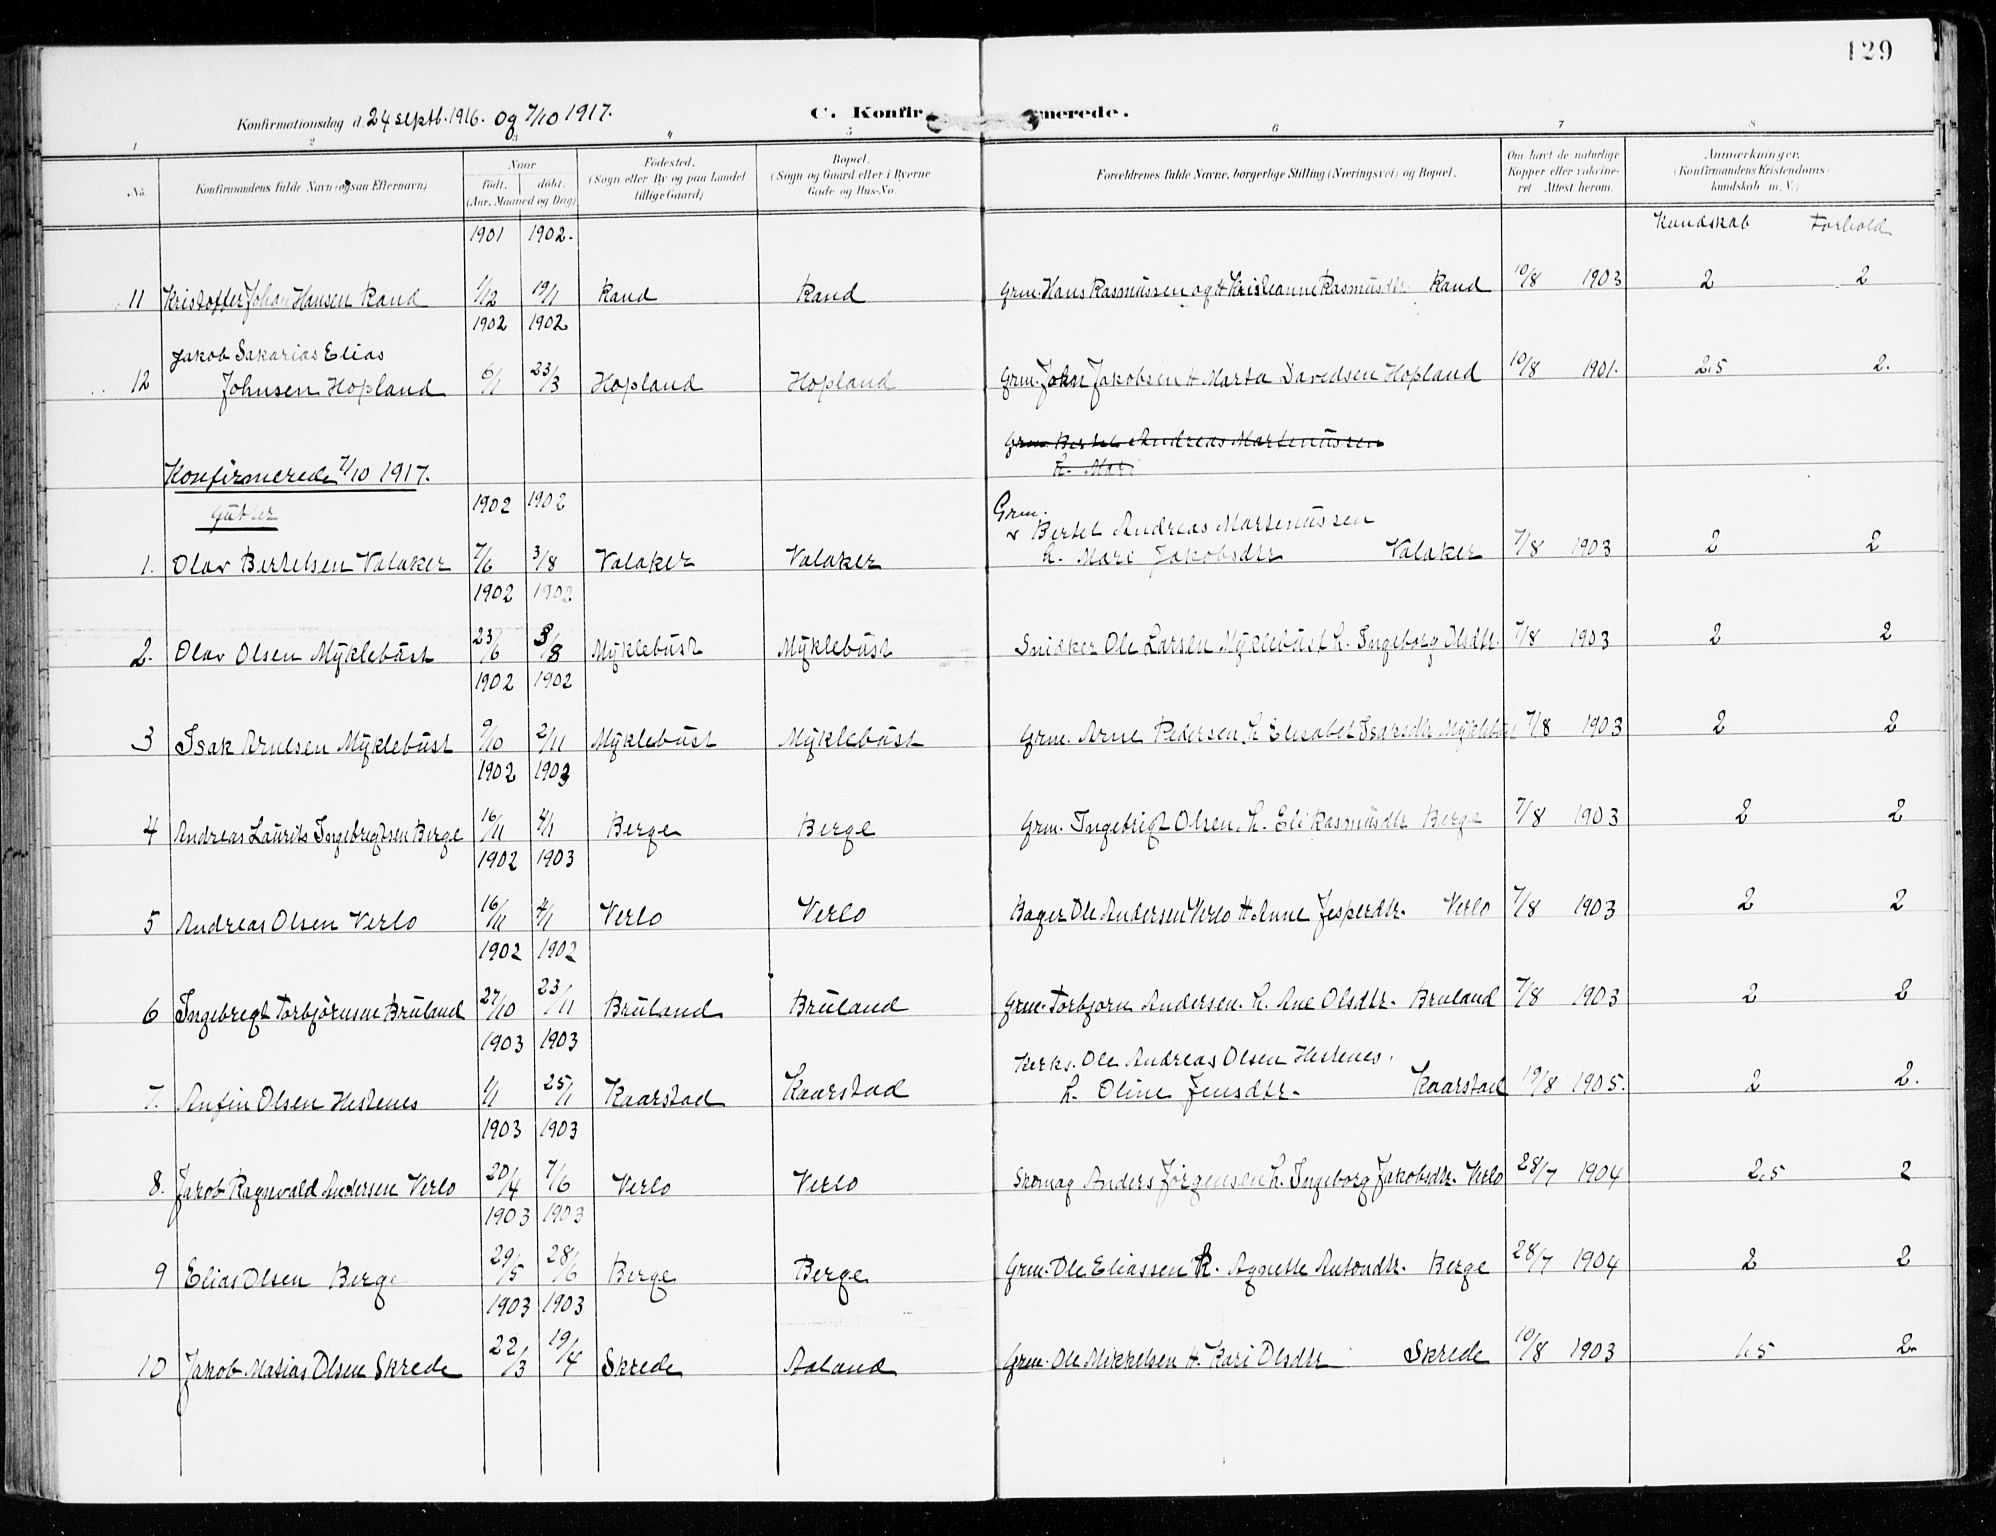 129
Konfirmationsdag d. 24 septb. 1916. og 7/10 1917.
C. Konfir merede.
1 2 3 5 6 7 8
No.
Konfirmandens fulde Navn (ogsaa Efternavn)
Naar
født. døbt.
(Aar, Maaned og Dag)
Fødested.
(Sogn eller By og paa Landet
tillige Gaard)
Bopæl.
(Sogn og Gaard eller i Byerne
Gade og Hus-No.
Forældrenes fulde Navne, borgerlige Stilling (Næringsvei) og Bopæl.
Om havt de naturlige
Kopper eller vakcine-
ret Attest herom.
Anmærkninger.
(Konfirmandens Kristendoms-
kundskab m. V.)
Kundskab Forhold
1901 1902.
11 Kristoffer Johan Hansen Rand 1/12 19/1 Rand Rand Grm. Hans Rasmussen og H Kristianne Rasmusdtr Rand 10/8 1903 2 2
1902 1902
Jakob Sakarias Elias
12 Johnsen Hopland 6/1 23/3 Hopland Hopland Grm. John Jakobsen H Marta Davidsen Hopland 10/8 1901. 2,5 2.
Grm. Bertel Andreas Martinussen
h. Mari
Konfirmerede 7/10 1917.
Gutter
1902 1902
Grm.
Bertel Andreas Martinussen
1. Olav Bertelsen Valaker 7/6 3/8 Valaker Valaker h. Mari Jakobsdtr Valaker 7/8 1903 2 2
1902 1902
2. Olav Olsen Myklebust 23/6 3/8 Myklebust Myklebust Snidker Ole Larsen Myklebust h. Ingeborg Olsdtr. 7/8 1903 2 2
1902 1902
3 Isak Arnesen Myklebust 9/10 2/11 Myklebust Myklebust Grm. Arne Pedersen, h Elisabet Isaksdtr Myklebust 7/8 1903 2 2
1902 1903
4 Andreas Laurits Ingebrigtsen Berge 16/11 4/1 Berge Berge Grm. Ingebrigt Olsen, h. Eli Rasmusdtr Berge 7/8 1903 2 2
1902 1903
5 Andreas Olsen Verlo 16/11 4/1 Verlo Verlo Bager Ole Andersen Verlo H Anne Jesperdtr. Verlo 7/8 1903 2 2
1902 1902
6 Ingebregt Torbjørnsen Bruland 27/10 23/11 Bruland Bruland Grm. Torbjorn Andersen. h. Ane Olsdtr. Bruland 7/8 1903 2 2
1903 1903
Kirks. Ole Andreas Olsen Hestenes.
7. Anfin Olsen Hestenes 1/1 25/1 Kaarstad Kaarstad h. Oline Jensdtr. Kaarstad 19/8 1905. 2 2.
1903 1903
8. Jakob Ragnvald Andersen Verlo 20/4 7/6 Verlo Verlo Skomag Anders Jørgensen h. Ingeborg Jakobsdtr. Verlo 28/7 1904 2,5 2
1903 1903
9 Elias Olsen Berge 29/5 28/6 Berge Berge Grm. Ole Eliassen h. Agnette Antondtr. Berge 28/7 1904 2 2
1903 1903
10 Jakob Matias Olsen Skrede 22/3 19/4 Skrede Aaland Grm. Ole Mikkelsen H. Kari Olsdtr Skrede 10/8 1903 1,5 2